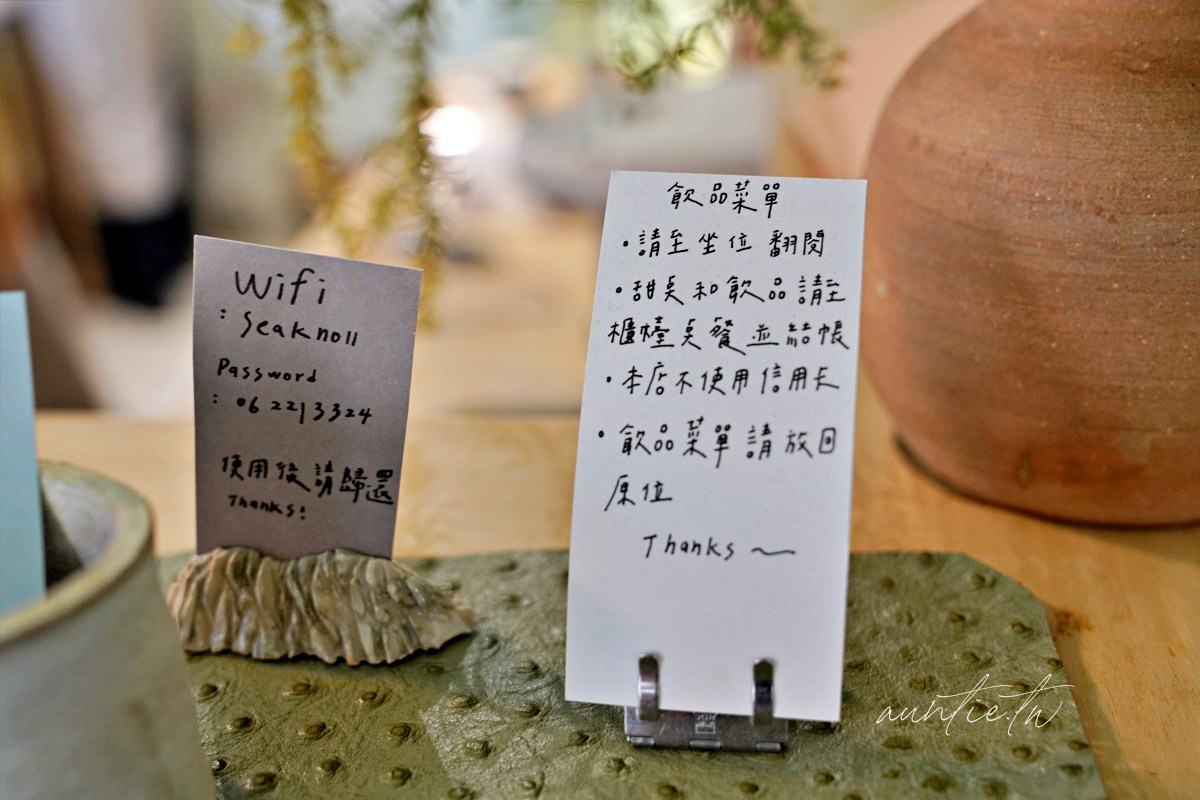 Wifi
: Seaknoll
Password
: 06 2213324
使用後請歸還
Thanks!
飲品菜單
・請至坐位 翻閱
・甜桌和飲品請至
櫃檯桌餐並結帳
・本店不使用信用卡
・飲品菜單請放回
原位
Thanks ～
auntie.tw